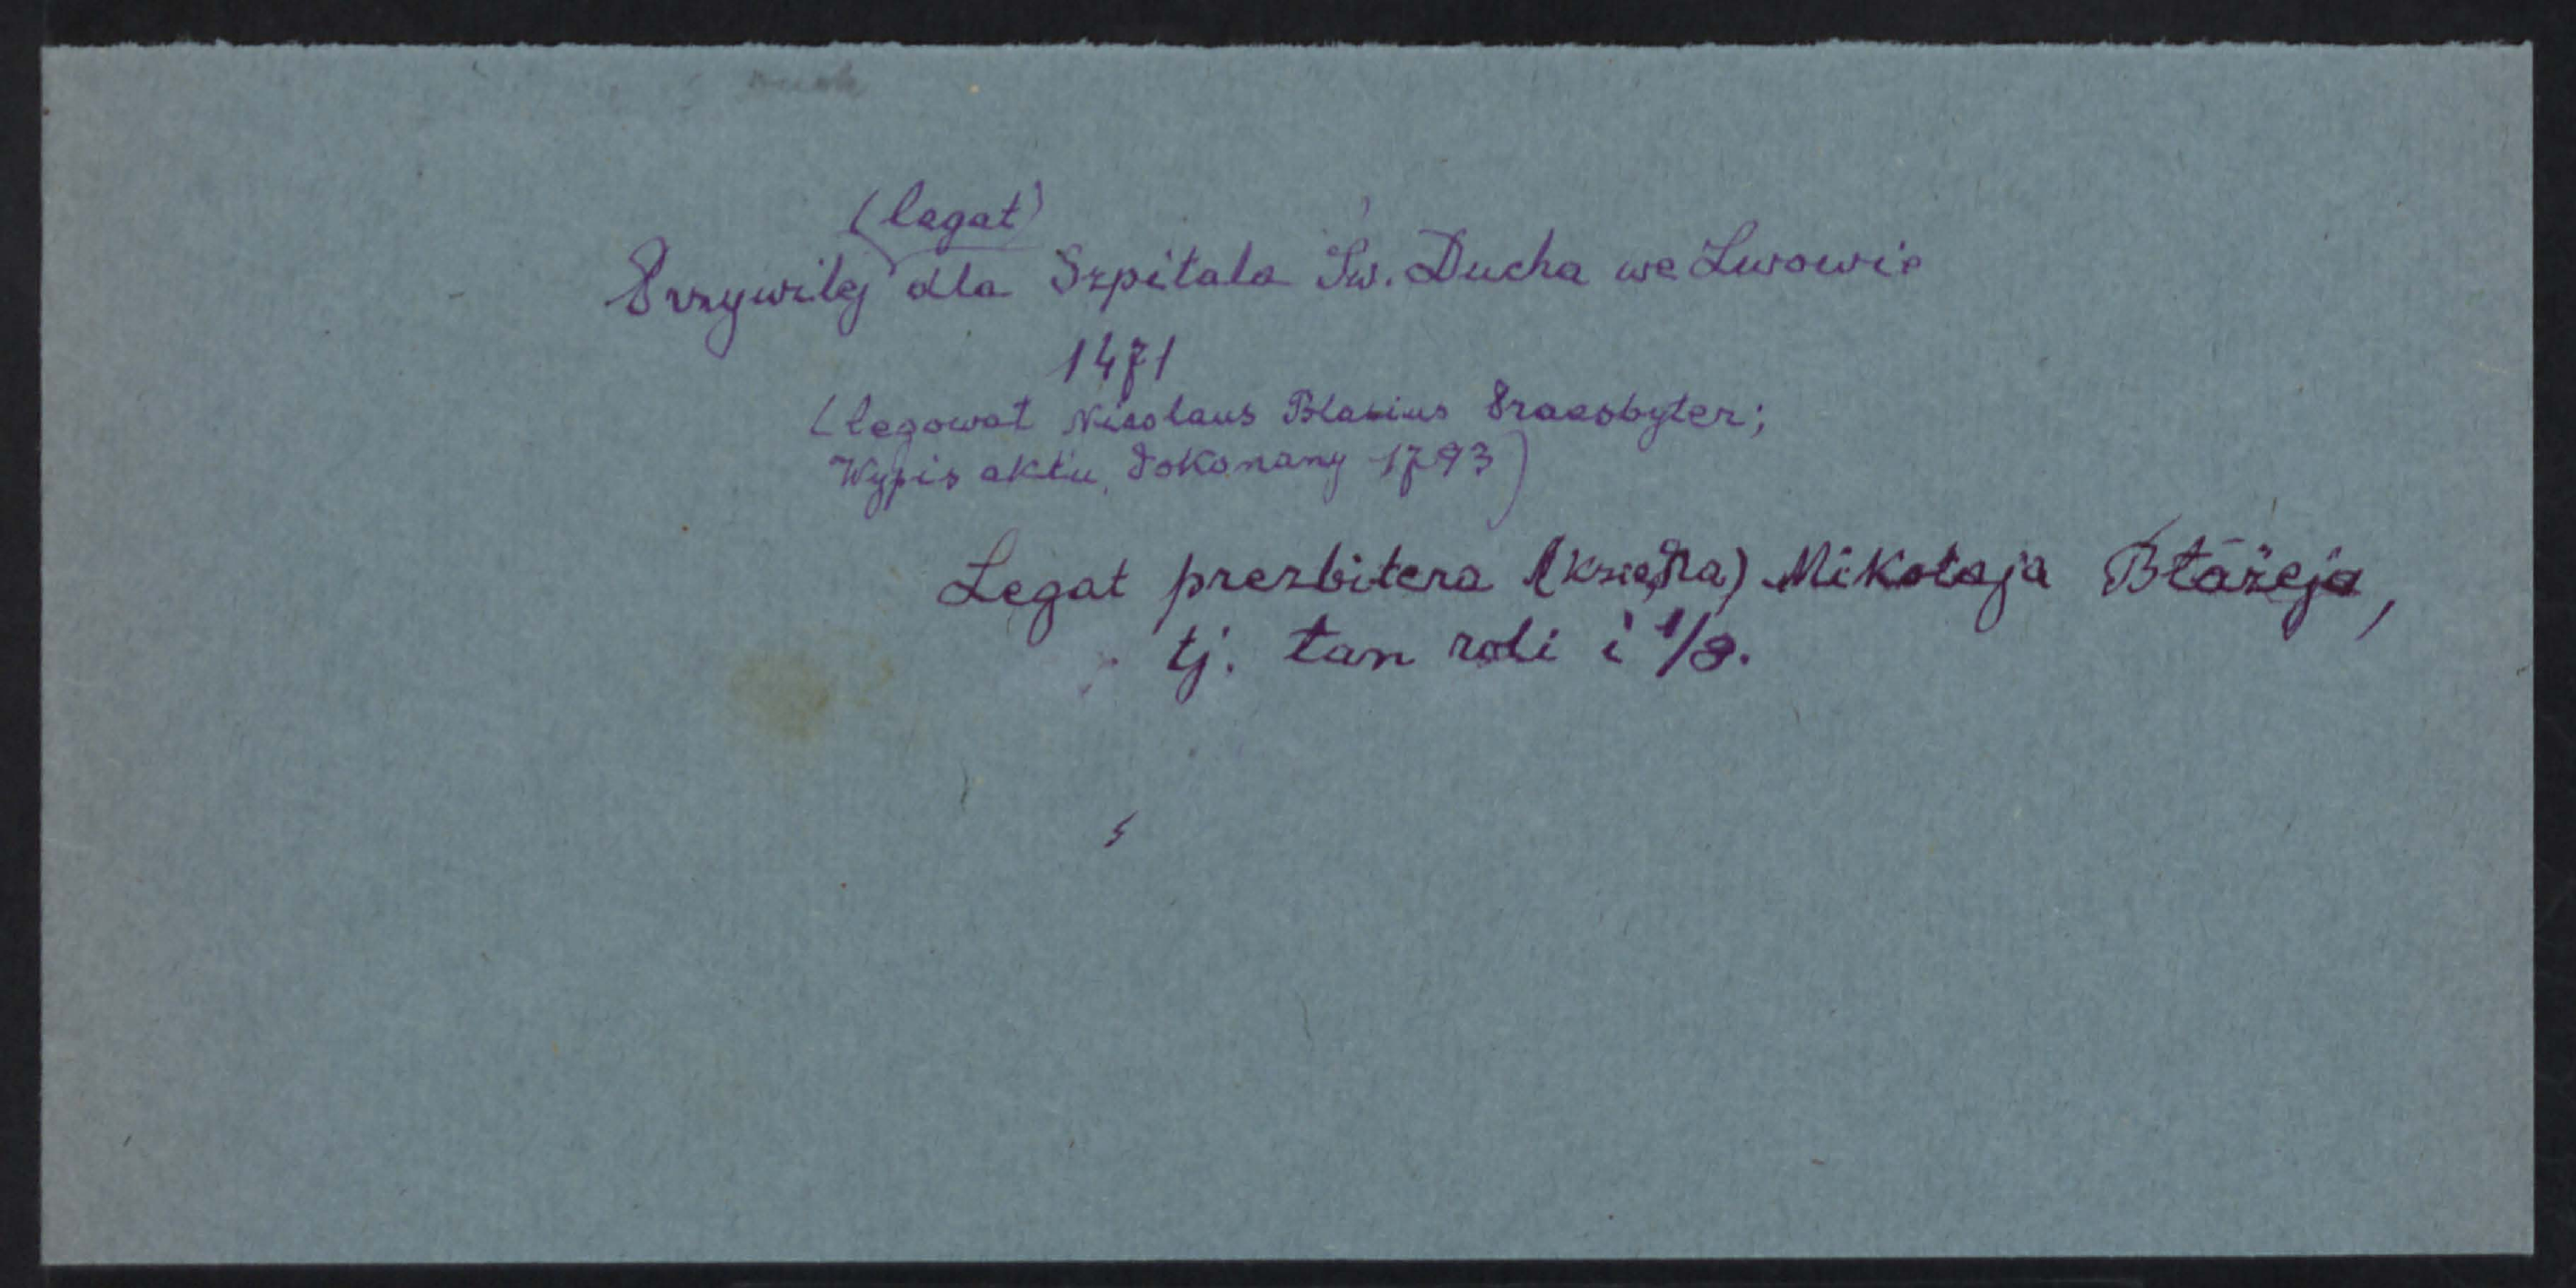 (legat)
Przywilej dla Szpitala Św. Ducha we Lwowie
1471
(legował Nicolaus Blasius Praesbyter;
Wypis aktu, dokonany 1793)
Legat prezbitera (księdza) Mikołaja Błażeja,
tj. łan roli i 1/2.